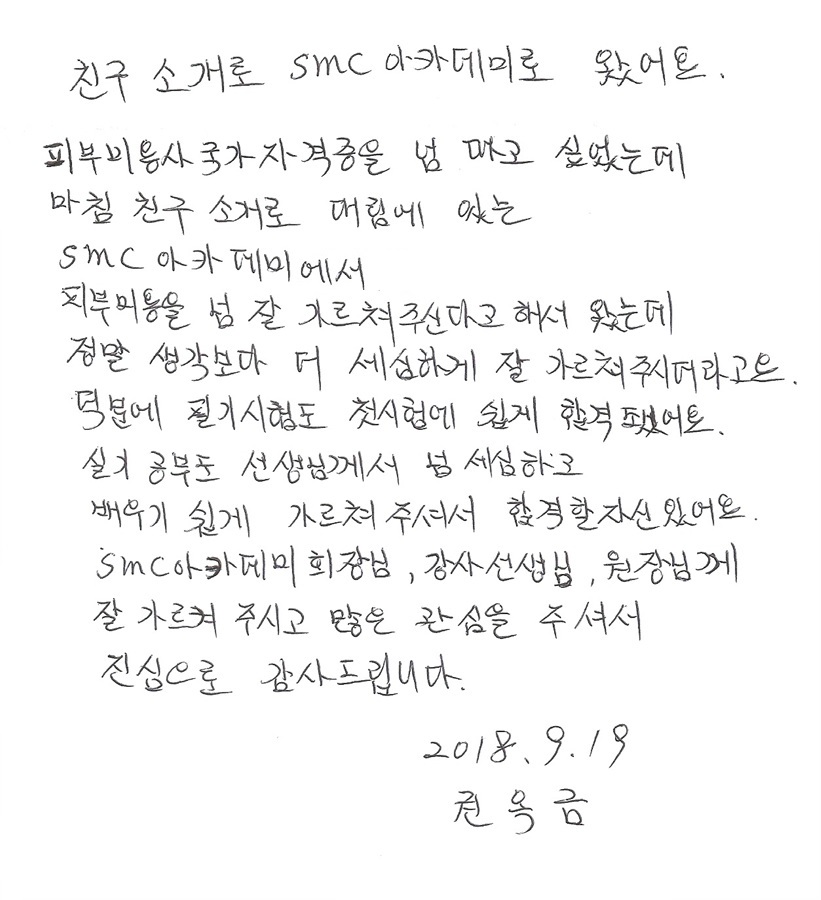 친구 소개로 SMC 아카데미로 왔어요.
피부미용사국가자격증을 넘 따고 싶었는데
마침 친구 소개로 대림에 있는
SMC 아카데미에서
피부미용을 넘 잘 가르쳐주신다고 해서 왔는데
정말 생각보다 더 세심하게 잘 가르쳐주시더라고요.
덕분에 필기시험도 첫시험에 쉽게 합격됐어요.
실기 공부도 선생님께서 넘 세심하고
배우기 쉽게 가르쳐 주셔서 합격할자신있어요.
SMC아카데미 회장님, 강사선생님, 원장님께
잘 가르켜 주시고 많은 관심을 주셔서
진심으로 감사드립니다.
2018.9.19
권옥금